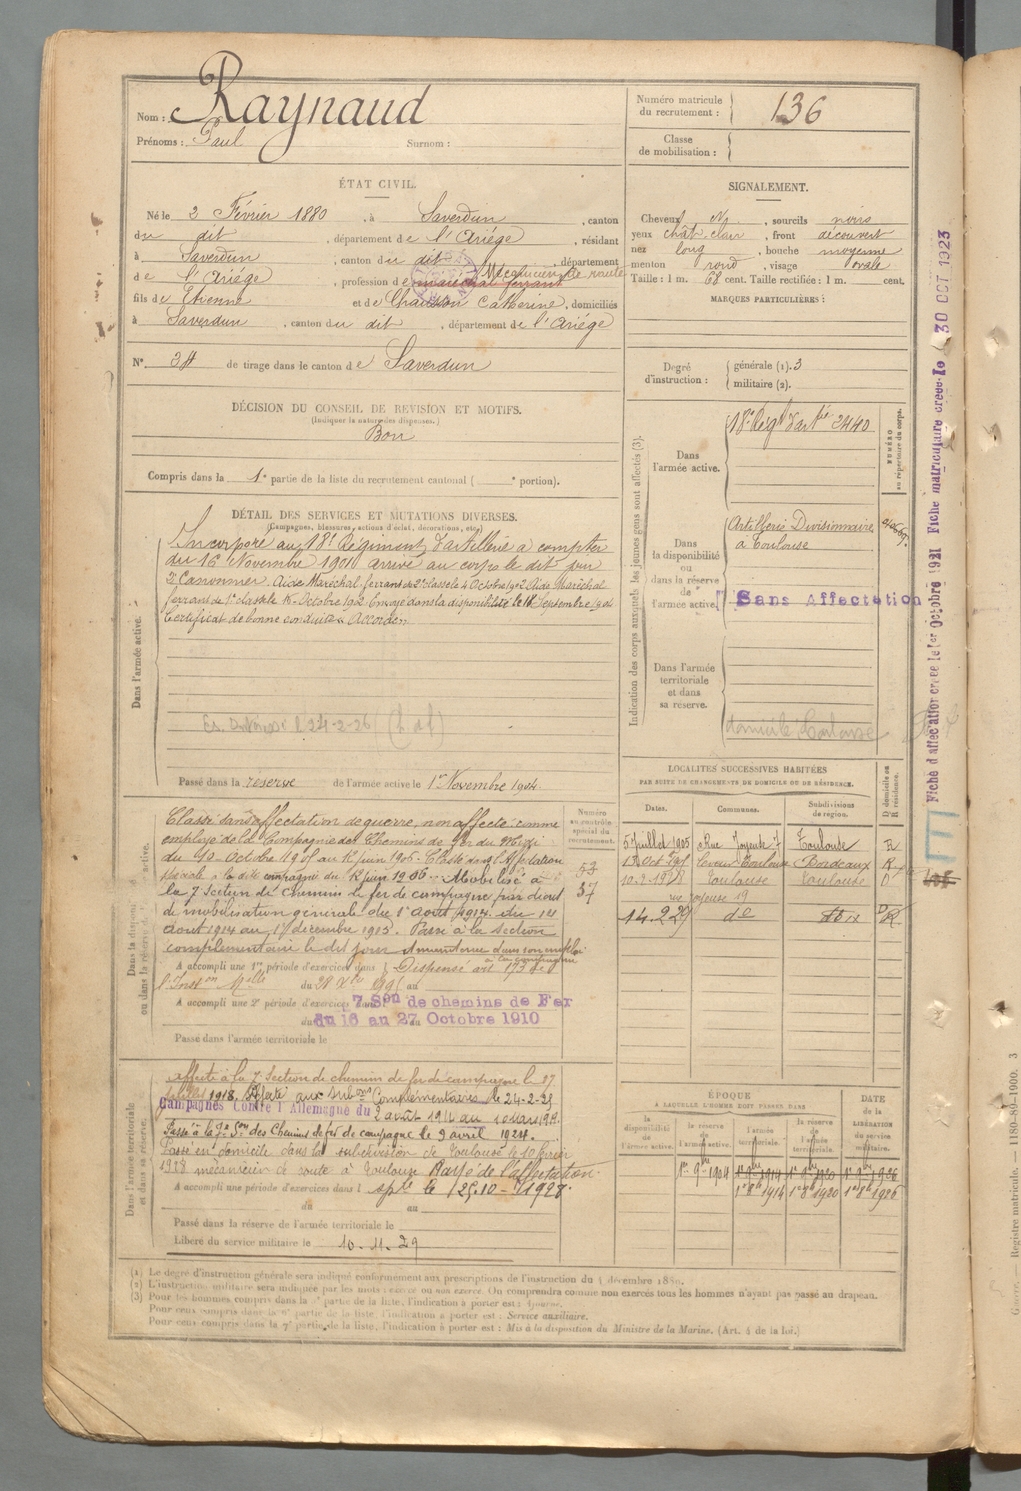 Nom : Raynaud
Prénoms : Paul Surnom :
Numéro matricule du recrutement : 136
Classe de mobilisation :
ÉTAT CIVIL.
Né le 2 Février 1880, à Saverdun, canton
du dit, département de l'Ariége, résidant
à Saverdun, canton du dit, département
de l'Ariége, profession de maréchal ferrant Mécanicien de route
fils de Etienne et de Chausson Catherine, domiciliés
à Saverdun, canton du dit, département de l'Ariége
N° 34 de tirage dans le canton de Saverdun
SIGNALEMENT.
Cheveux N, sourcils noirs
yeux chât. clair, front découvert
nez long, bouche moyenne
menton rond, visage ovale
Taille : 1 m. 68 cent. Taille rectifiée : 1 m. cent.
MARQUES PARTICULIÈRES :
Degré d'instruction : générale (1). 3
militaire (2).
DÉCISION DU CONSEIL DE REVISION ET MOTIFS.
(Indiquer la nature des dispenses.)
Bon
Compris dans la 1e partie de la liste du recrutement cantonal ( e portion).
DÉTAIL DES SERVICES ET MUTATIONS DIVERSES.
(Campagnes, blessures, actions d'éclat, décorations, etc.)
Dans l'armée active.
Incorporé au 18e Régiment d'artillerie à compter
du 16 Novembre 1901 arrivé au corps le dit jour
2e Canonnier. Aide Maréchal-ferrant de 2e classe le 4 Octobre 1902 Aide Maréchal
ferrant de 1e classe le Octobre 1902. Envoyé dans la disponibilité le 18 Septembre 1904
Certificat de bonne conduite Accordé
24-2-26
Passé dans la réserve de l'armée active le 1er Novembre 1904
Indication des corps auxquels les jeunes gens sont affectés (3).
NUMÉRO au répertoire du corps.
Dans l'armée active.
18e Régt d'artie 2440
Dans la disponibilité ou dans la réserve de l'armée active.
Artillerie Divisionnaire
à Toulouse
Sans Affectation
Dans l'armée territoriale et dans sa réserve.
domicile Toulouse
Fiche d'affectation créée le 1er Octobre 1921 Fiche matriculaire créée le 30 OCT 1923
Numéro au contrôle spécial du recrutement.
53
37
Dans la disponibilité ou dans la réserve de l'armée active.
Classé dans affectation de guerre, non affecté comme
employé de la Compagnie des Chemins de fer du Midi
du 10 Octobre 1905 au 12 juin 1906. Classé dans l'Affectation
spéciale à la dite compagnie du 12 juin 1906. Mobilisé à
la 7 Section de chemins de fer de campagne par décret
de mobilisation générale du 1er août 1914 du 14
août 1914 au 1 décembre 1915. Passé à la section
complémentaire le dit jour et maintenu dans son emploi
à la compagnie
A accompli une 1re période d'exercices dans l Dispensé art 173 de
l'Inston Mlle du 28 Xbre 1895 au
A accompli une 2e période d'exercices dans 7 Son de chemins de Fer
du 16 au 27 Octobre 1910
Passé dans l'armée territoriale le
LOCALITÉS SUCCESSIVES HABITÉES
PAR SUITE DE CHANGEMENTS DE DOMICILE OU DE RÉSIDENCE.
Dates. Communes. Subdivisions de région. D domicile ou R résidence.
5 juillet 1905 Rue Joyeuse 7 Toulouse R
Toulouse Bordeaux R
10.2.1928 Toulouse Toulouse D
rue joyeuse 19
14.2.29 do R
Dans l'armée territoriale et dans sa réserve.
affecté à la 7e Section de chemins de fer de campagne le 27
juillet 1918, Affecté aux subons Complémentaires le 24-2-25
Campagnes Contre l'Allemagne du 2 août 1914 au
Passé à la 7e Son des Chemins de fer de campagne le 9 avril 1924.
Passé en domicile dans la subdivision de Toulouse le 10 février
1928 mécanicien de route à Toulouse Rayé de l'affectation
A accompli une période d'exercices dans l sple le 25.10-1928.
du au
Passé dans la réserve de l'armée territoriale le
Libéré du service militaire le 10.11.29
ÉPOQUE
A LAQUELLE L'HOMME DOIT PASSER DANS
DATE DE LA LIBÉRATION du service militaire.
la disponibilité de l'armée active. la réserve de l'armée active. l'armée territoriale. la réserve de l'armée territoriale.
1er 9bre 1904 1er 9bre 1914 1er 9bre 1920 1er 9bre 1926
1er 8bre 1914 1er 8bre 1920 1er 8bre 1926
(1) Le degré d'instruction générale sera indiqué conformément aux prescriptions de l'instruction du 4 décembre 1889.
(2) L'instruction militaire sera indiquée par les mots : exercé ou non exercé. On comprendra comme non exercés tous les hommes n'ayant pas passé au drapeau.
(3) Pour les hommes compris dans la 2e partie de la liste, l'indication à porter est : Ajourné.
Pour ceux compris dans la 6e partie de la liste, l'indication à porter est : Service auxiliaire.
Pour ceux compris dans la 7e partie de la liste, l'indication à porter est : Mis à la disposition du Ministre de la Marine. (Art. 4 de la loi.)
Guerre. — Registre matricule. — 1180-89-1900. 3